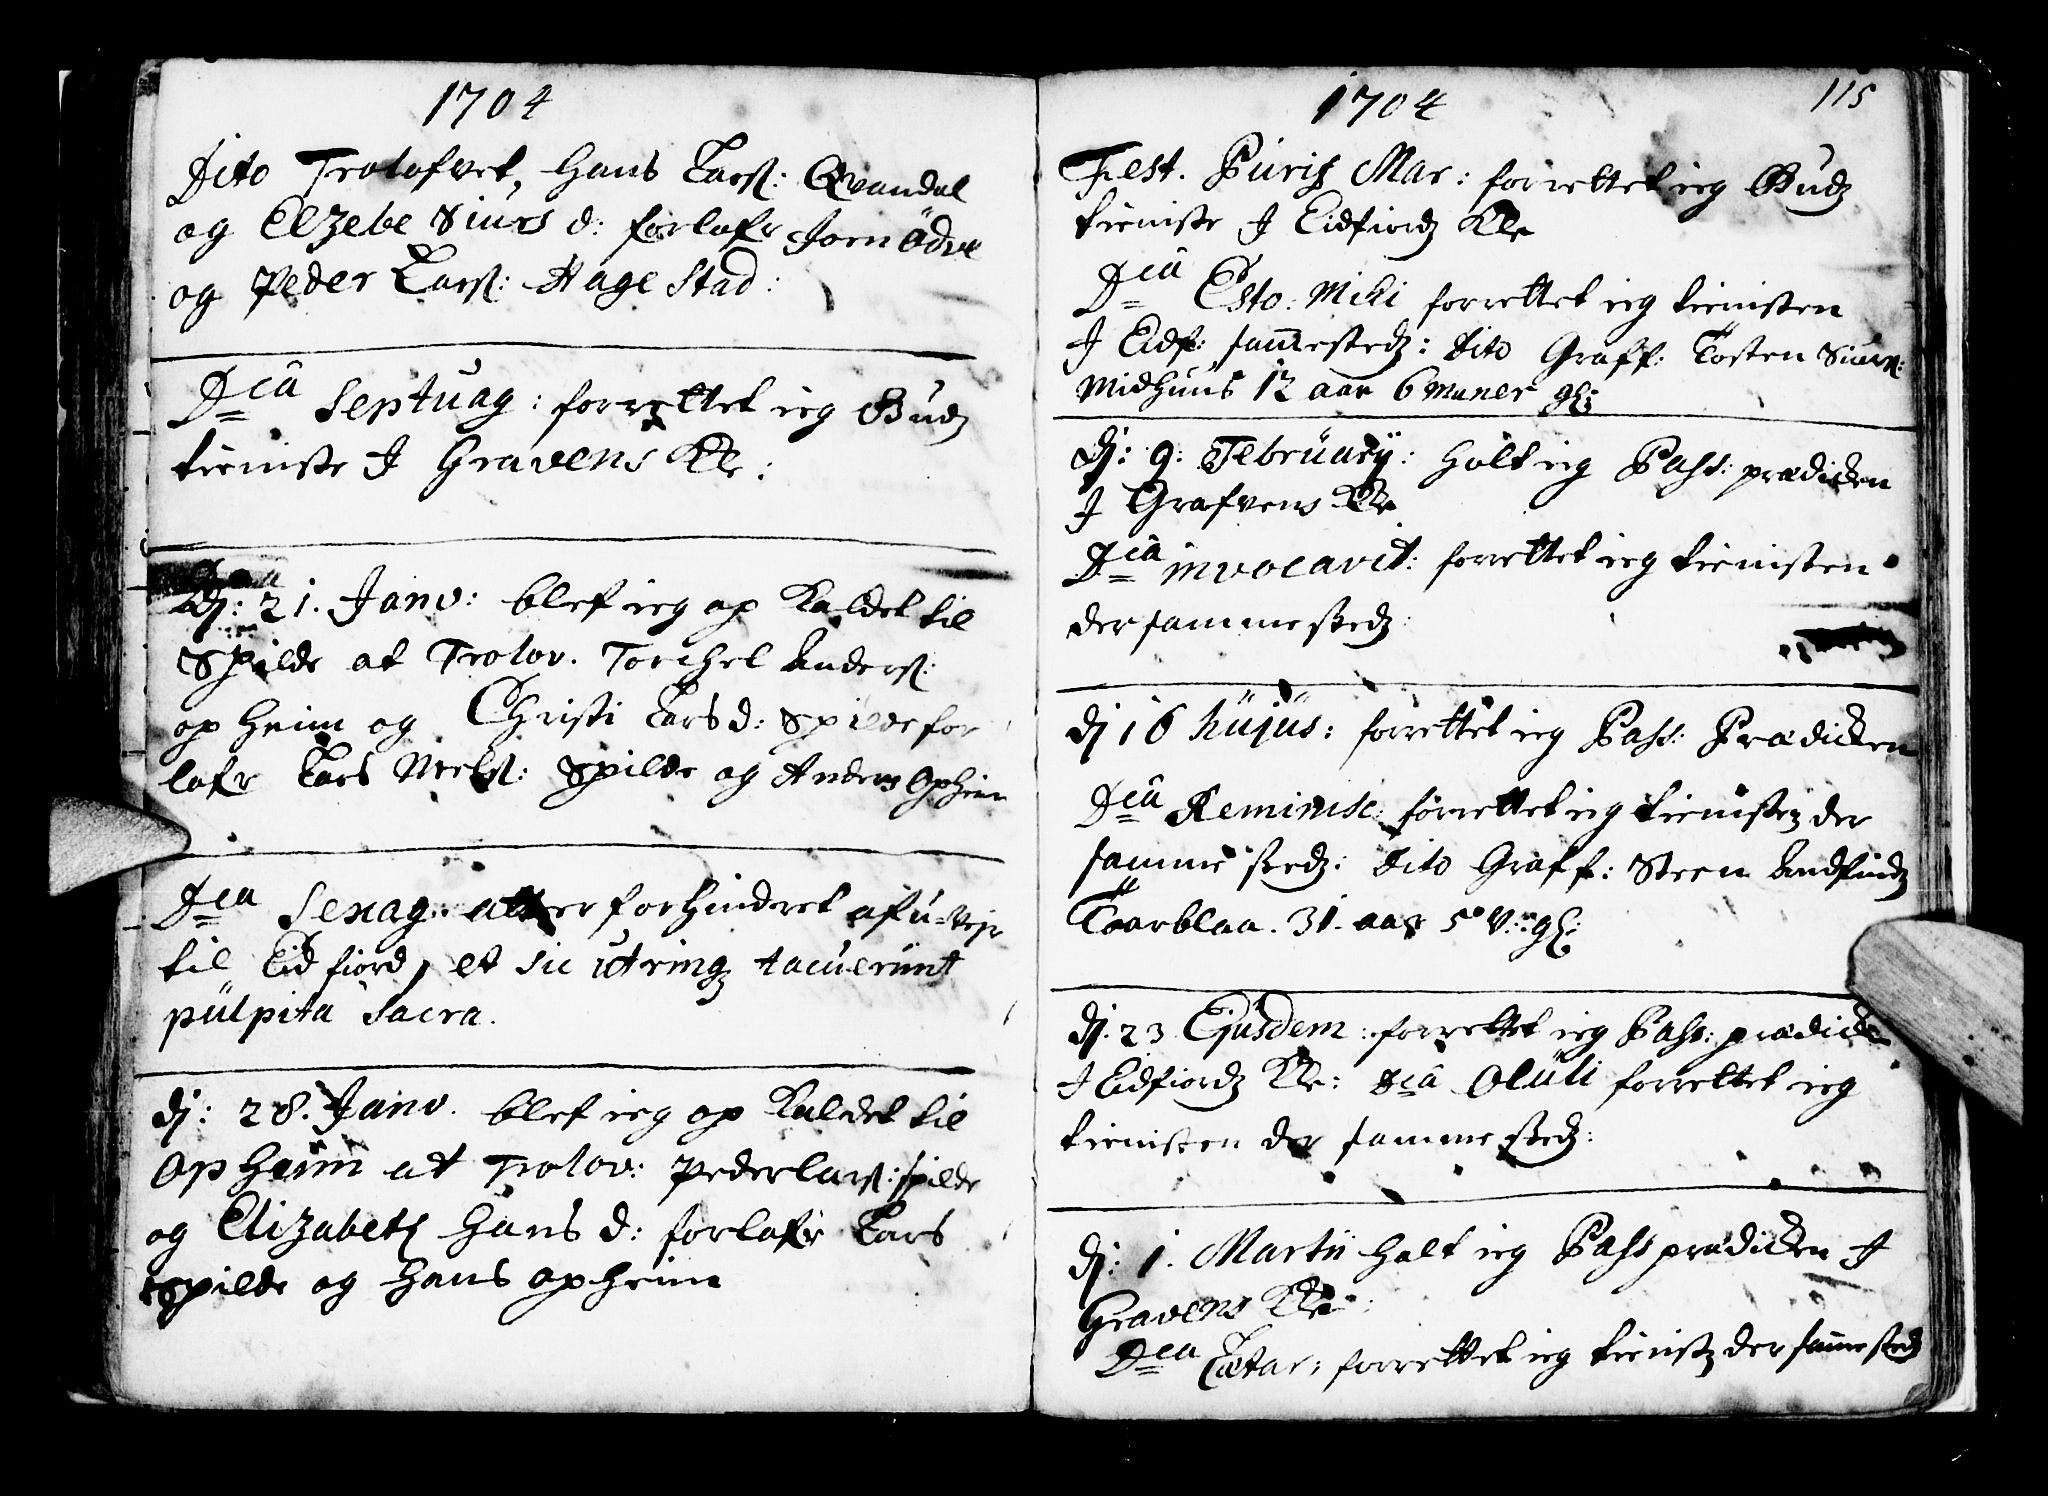 1704
Dito Trolofvet, Hans Larsß: Qvandal
og Elzebe Siurs d: forlofr Joen Ödve
og Peder Larsß: Hage Stad:
Dca Septuag: forrettet ieg Gudz
tieniste J Gravens Kke:
dj: 21. Janv: blef ieg op kaldet til
Spilde at Trolov. Torchel Andersß:
op heim og Christi Lars d: Spilde for
lofr Lars Nielsß: Spilde og Anders Opheim
Dca Sexag: atter forhindret af u=vejr
til Eidfiord, et sic utrinqz tacuerünt
pülpita Sacra.
dj: 28. Janv. blef ieg op kaldet til
Opheim at Trolov: Peder Larsß: spilde
og Elizabeth Hans d: forlofr Lars
Spilde og Hans opheim
1704
115
Fest. Pürif Mar: forrettet ieg Gudz
tieniste J Eidfiordz Kke
Dca Esto. Mihi forrettet ieg tienisten
J Eidf: sammestedz: dito Graff: Tosten Siursß:
Midhuüs 12 aar 6 maner gl:
dj: 9. Februarij: holt ieg Pass: prædicken
J Grafvens Kke
Dca invocavit: forrettet ieg tienisten
der sammestedz:
dj 16 hüjüs: forrettet ieg Pass: Prædicken
Dca Reminisc: forrettet ieg tienisten der
samme stedz: dito Graff: Steen Andfindz
Taarblaa. 31. aar 5 V: gl:
dj. 23 Ejusdem: forrettet ieg Pass: prædicken
J Eidfiordz Kke: dca Oculi forrettet ieg
tienisten der samme stedz:
dj: 1. Martii holt ieg Pass prædicken J
Gravens Kke:
Dca Lætar: forrettet ieg tienistz der samme stedz